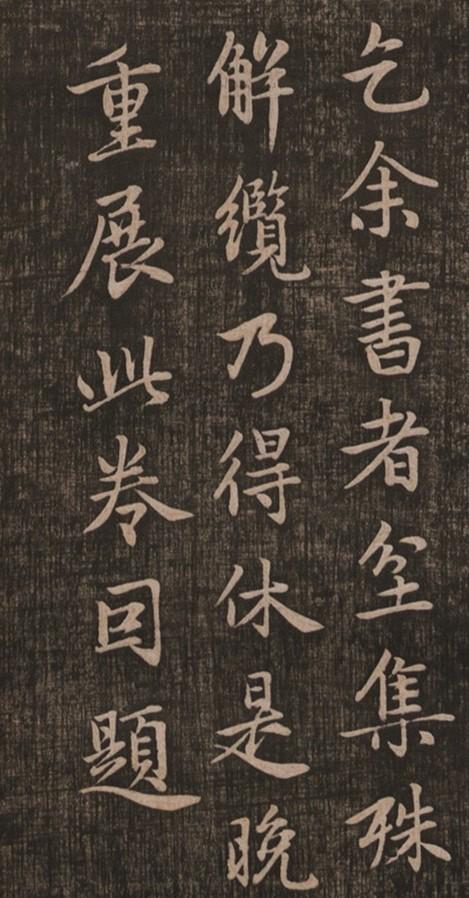 乞余書者坌集殊
解纜乃得休是晚
重展此卷因題